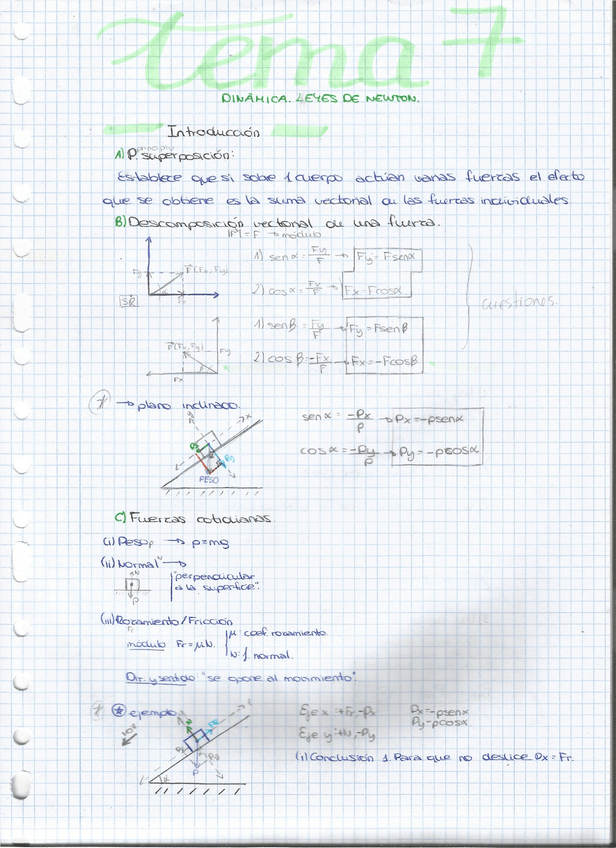 tema 7
DINÁMICA. LEYES DE NEWTON.
Introducción
A) P. superposición:
principio
Establece que si sobre 1 cuerpo actúan varias fuerzas el efecto
que se obtiene es la suma vectorial de las fuerzas individuales
B) Descomposición vectorial de una fuerza.
|F| = F → módulo
1) sen α = Fy/F → Fy = F sen α
Fy F(Fx, Fy)
2) cos α = Fx/F → Fx = F cos α
SR
cuestiones.
1) sen β = Fy/F → Fy = F sen β
F(Fx, Fy) Fy
2) cos β = -Fx/F → Fx = -F cos β
Fx
* → plano inclinado.
x
sen α = -Px/P → Px = -P sen α
cos α = -Py/P → Py = -P cos α
Px Py
PESO
C) Fuerzas cotidianas
(i) Peso P → P = mg
(ii) Normal N →
N
"perpendicular
a la superficie".
P
(iii) Rozamiento/Fricción
Fr
módulo Fr = μN.
μ: coef. rozamiento
N: f. normal.
Dir. y sentido: "se opone al movimiento"
* ejemplo
Eje x: +Fr, -Px
Px = -P sen α
Py = -P cos α
Eje y: +N, -Py
(i) Conclusión 1. Para que no deslice Px = Fr.
Px Py
P
α